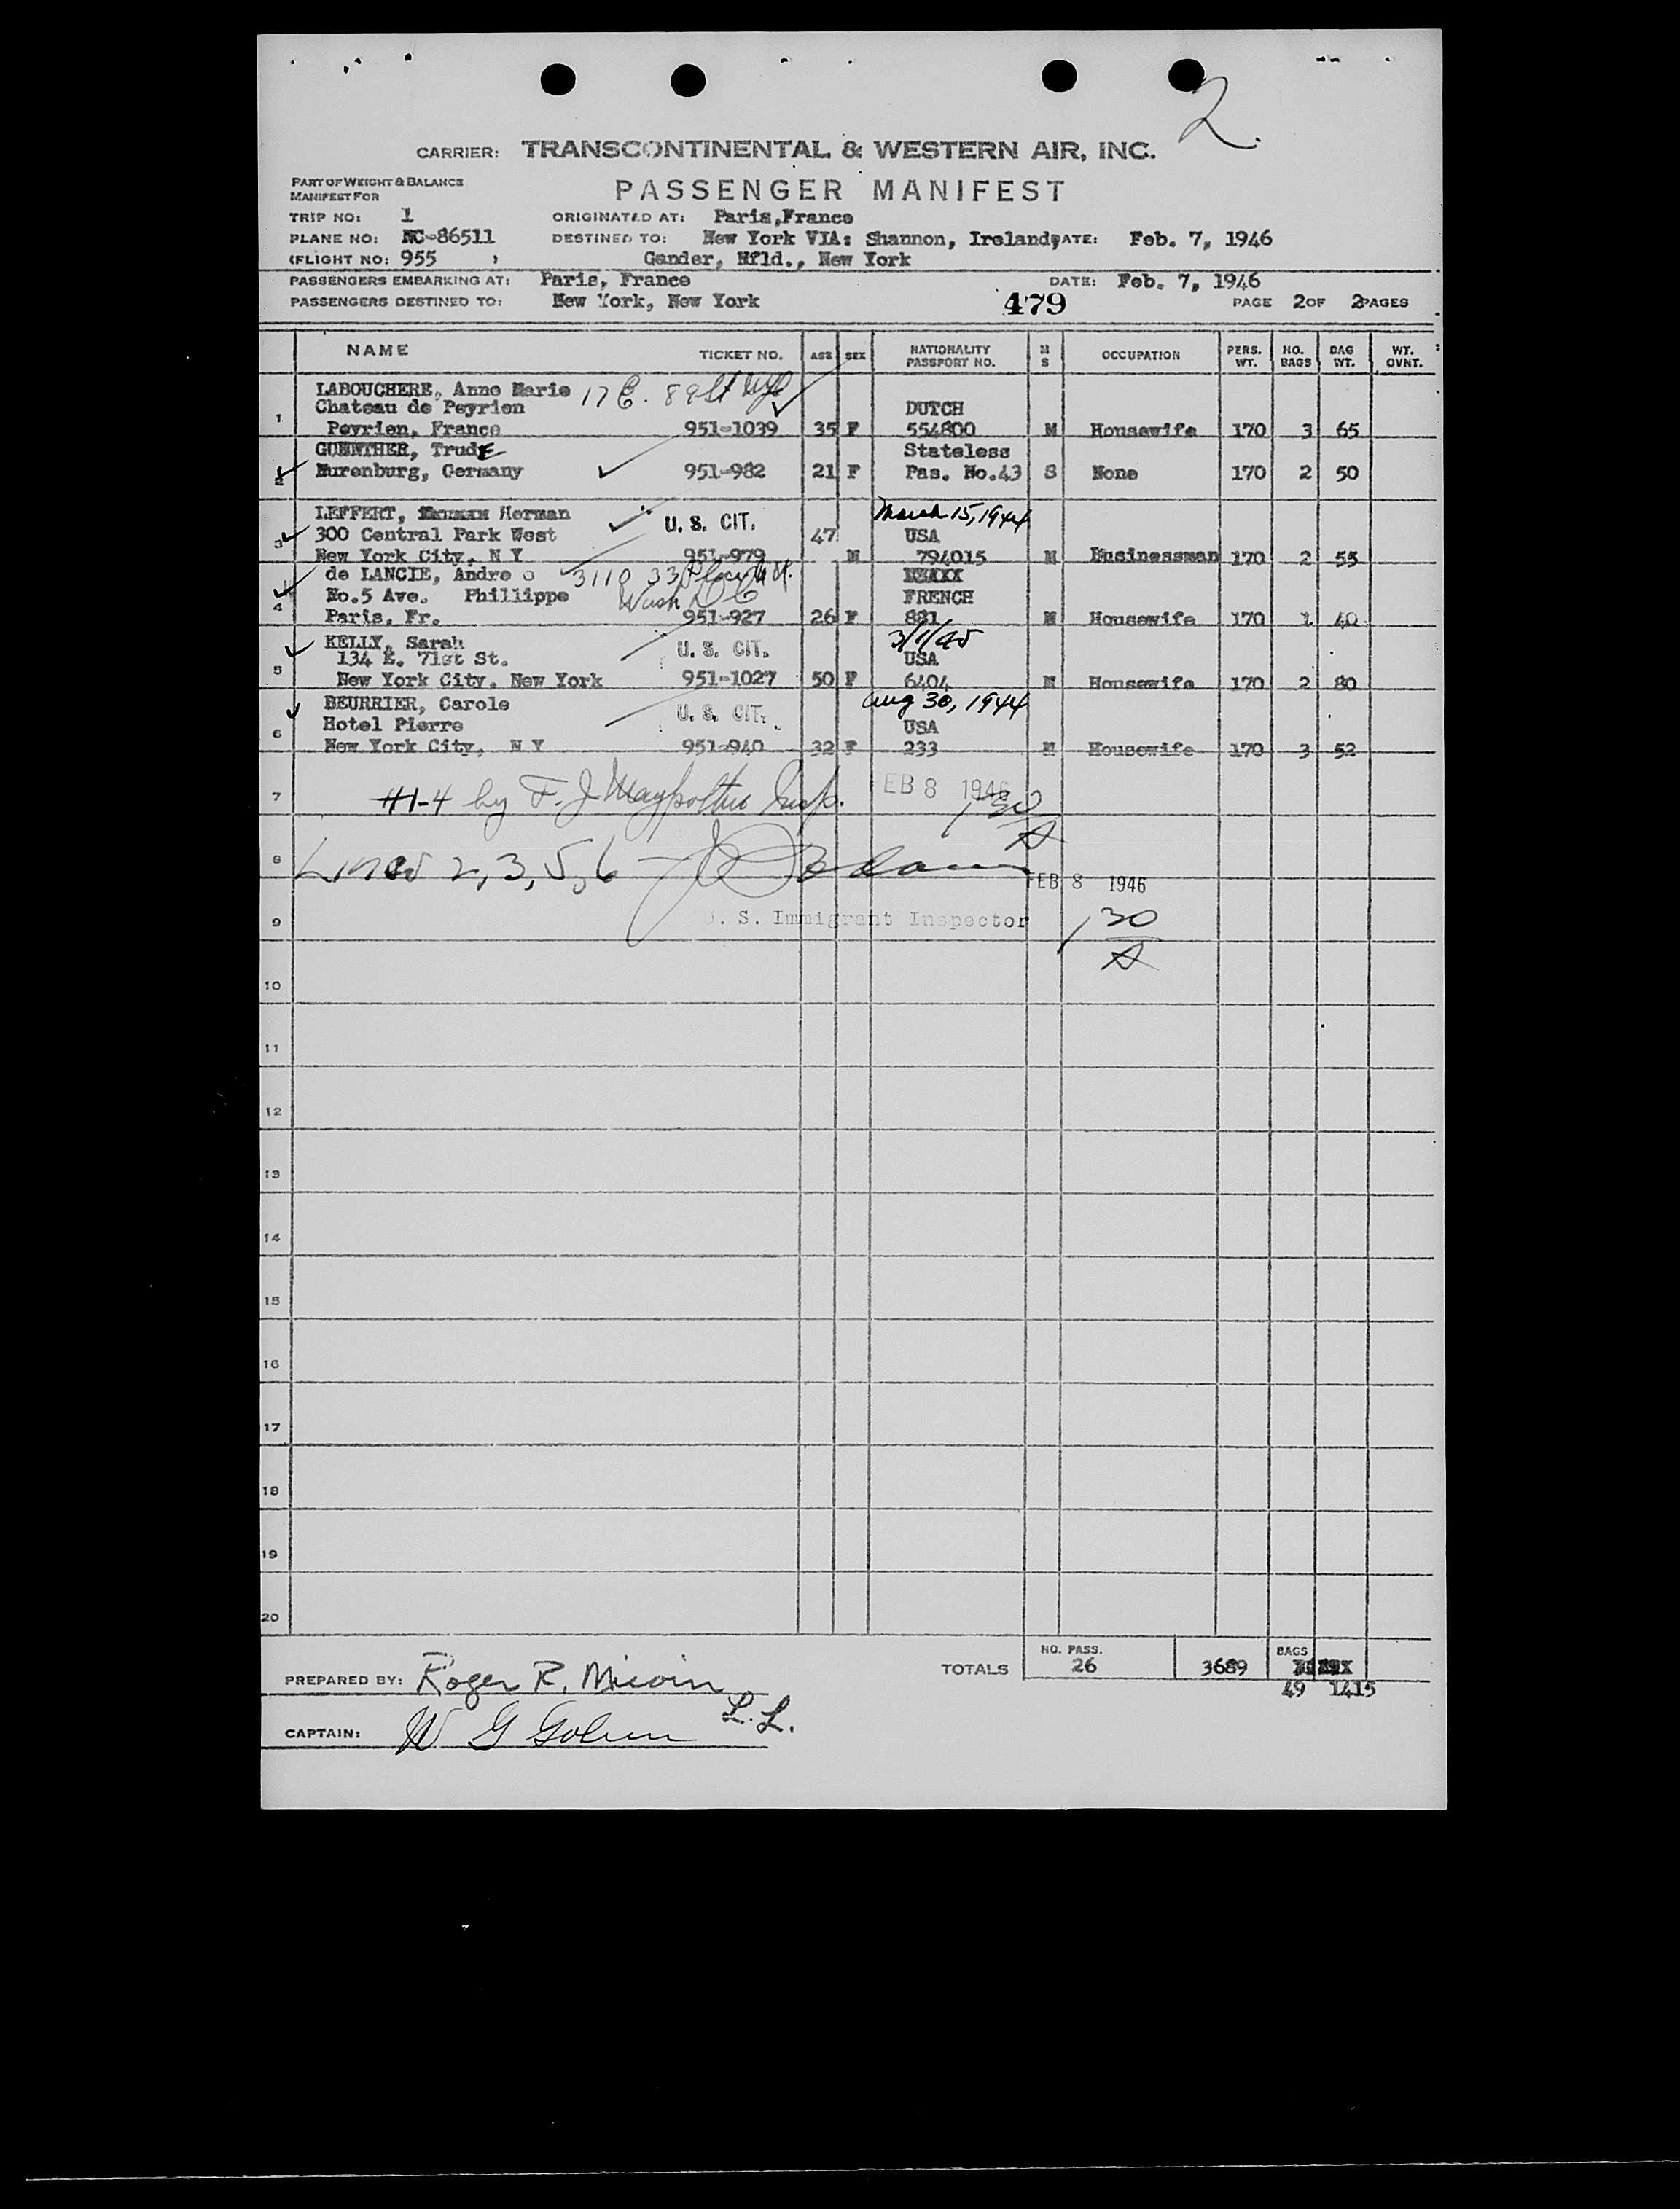 2.
CARRIER: TRANSCONTINENTAL & WESTERN AIR, INC.
PART OF WEIGHT & BALANCE
MANIFEST FOR
PASSENGER MANIFEST
TRIP NO: 1 ORIGINATED AT: Paris,France
PLANE NO: NC-86511 DESTINED TO: New York VIA: Shannon, Ireland, DATE: Feb. 7, 1946
(FLIGHT NO: 955 ) Gander, Nfld., New York
PASSENGERS EMBARKING AT: Paris, France DATE: Feb. 7, 1946
PASSENGERS DESTINED TO: New York, New York 479 PAGE 2 OF 2 PAGES
NAME TICKET NO. AGE SEX NATIONALITY PASSPORT NO. M S OCCUPATION PERS. WT. NO. BAGS BAG WT. WT. OVNT.
LABOUCHERE, Anne Marie 17 E. 89 St
Chateau de Peyrien DUTCH
1 Peyrien, France 951-1039 35 F 554800 M Housewife 170 3 65
GUENTHER, TrudE Stateless
2 Nurenburg, Germany 951-982 21 F Pas. No.43 S None 170 2 50
LEFFERT, Herman U. S. CIT. March 15, 1944
300 Central Park West 47 USA
3 New York City, N Y 951-979 M 794015 M Businessman 170 2 55
de LANCIE, Andre e 3110 33 Place
No.5 Ave. Phillippe Wash D C FRENCH
4 Paris, Fr. 951-927 26 F 881 M Housewife 170 1 40
KELLY, Sarah U. S. CIT. 3/1/45
134 E. 71st St. USA
5 New York City, New York 951-1027 50 F 6404 M Housewife 170 2 80
BEURRIER, Carole U. S. CIT. Aug 30, 1944
6 Hotel Pierre USA
New York City, N Y 951-940 32 F 233 M Housewife 170 3 52
7 #1-4 by F. J. Insp. FEB 8 1946
1 30
A
8 Lines 2, 3, 5, 6
FEB 8 1946
9 U. S. Immigrant Inspector 1 30
A
10
11
12
13
14
15
16
17
18
19
20
TOTALS NO. PASS. 26 3689 BAGS
49 1415
PREPARED BY: Roger R.
L.L.
CAPTAIN: W G